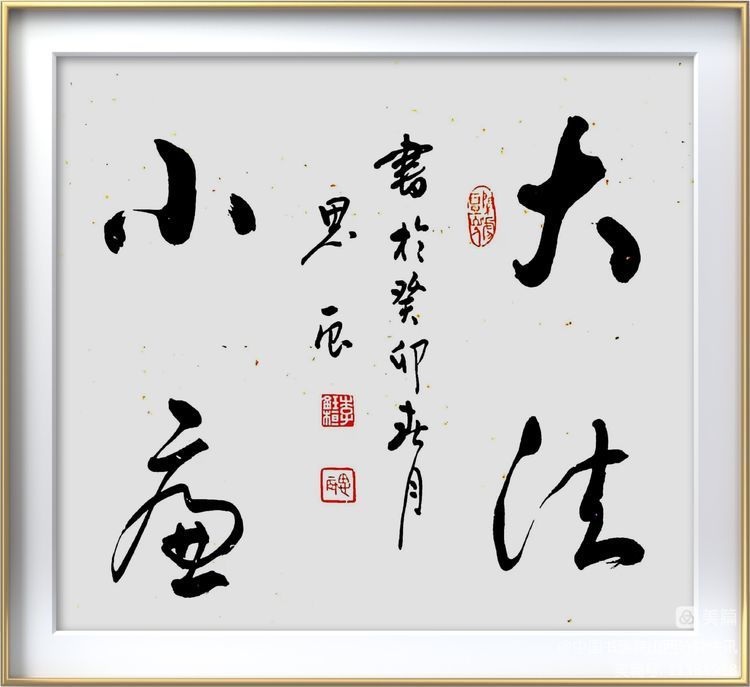 大法
小廉
書於癸卯春月
思辰
美篇